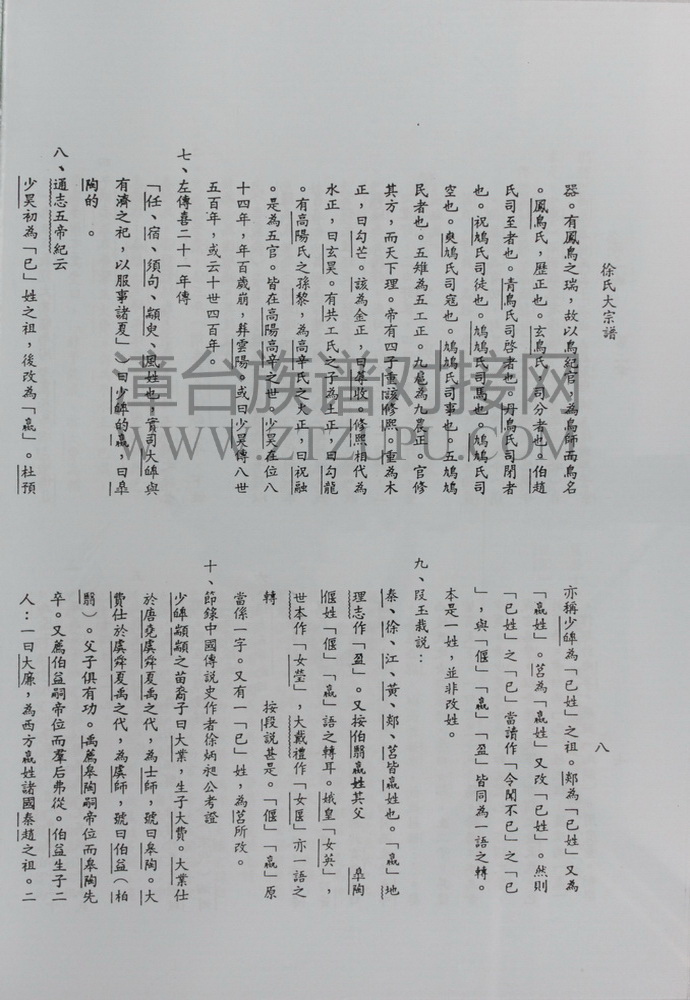 徐氏大宗譜
器。有鳳鳥之瑞，故以鳥紀官，為鳥師而鳥名
。鳳鳥氏，歷正也。玄鳥氏，司分者也。伯趙
氏司至者也。青鳥氏司啓者也。丹鳥氏司閉者
也。祝鳩氏司徒也。鴡鳩氏司馬也。鳲鳩氏司
空也。爽鳩氏司寇也。鶻鳩氏司事也。五鳩鳩
民者也。五雉為五工正。九扈為九農正。官修
其方，而天下理。帝有四子重該修熙。重為木
正，曰勾芒。該為金正，曰蓐收。修熙相代為
水正，曰玄冥。有共工氏之子為土正，曰勾龍
。有高陽氏之孫黎，為高辛氏之火正，曰祝融
。是為五官。皆在高陽高辛之世。少昊在位八
十四年，年百歲崩，葬雲陽。或曰少昊傳八世
五百年，或云十世四百年。
七、左傳喜二十一年傳
「任、宿、須句、顓臾、風姓也，實司大皞與
有濟之祀，以服事諸夏」，曰少皞的嬴，曰皋
陶的　。
八、通志五帝紀云
少昊初為「己」姓之祖，後改為「嬴」。杜預
八
亦稱少皞為「己姓」之祖。郯為「己姓」又為
「嬴姓」。莒為「嬴姓」又改「己姓」。然則
「己姓」之「已」當讀作「令聞不已」之「已
」，與「偃」「嬴」「盈」皆同為一語之轉。
本是一姓，並非改姓。
九、段玉裁說：
秦、徐、江、黃、郯、莒皆嬴姓也。「嬴」地
理志作「盈」。又按伯翳嬴姓其父　皐陶
偃姓「偃」「嬴」語之轉耳。娥皇「女英」，
世本作「女瑩」，大戴禮作「女匽」亦一語之
轉　　　　按段說甚是。「偃」「嬴」原
當係一字。又有一「己」姓，為莒所改。
十、節錄中國傳說史作者徐炳昶公考證
少皞顓頊之苗裔子曰大業，生子大費。大業仕
於唐堯虞舜夏禹之代，為士師，號曰皋陶。大
費仕於虞舜夏禹之代，為虞師，號曰伯益（柏
翳）。父子俱有功。禹薦皋陶嗣帝位而皋陶先
卒。又薦伯益嗣帝位而羣后弗從。伯益生子二
人：一曰大廉，為西方嬴姓諸國秦趙之祖。二
章台族谱对接网
WWW.ZTZUPU.COM